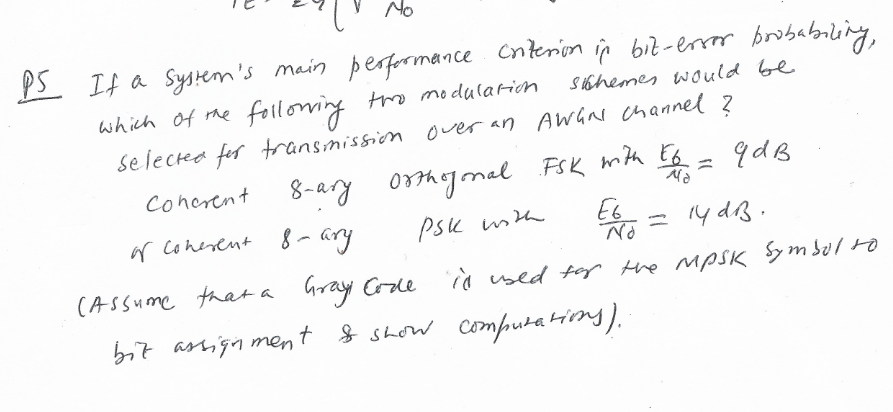 No
P5 If a system's main performance criterion is bit-error probability,
which of the following two modulation schemes would be
selected for transmission over an AWGN channel ?
Coherent 8-ary orthogonal FSK with Eb/No = 9 dB
or coherent 8-ary PSK with Eb/No = 14 dB.
(Assume that a Gray Code is used for the MPSK symbol to
bit assignment & show computations).